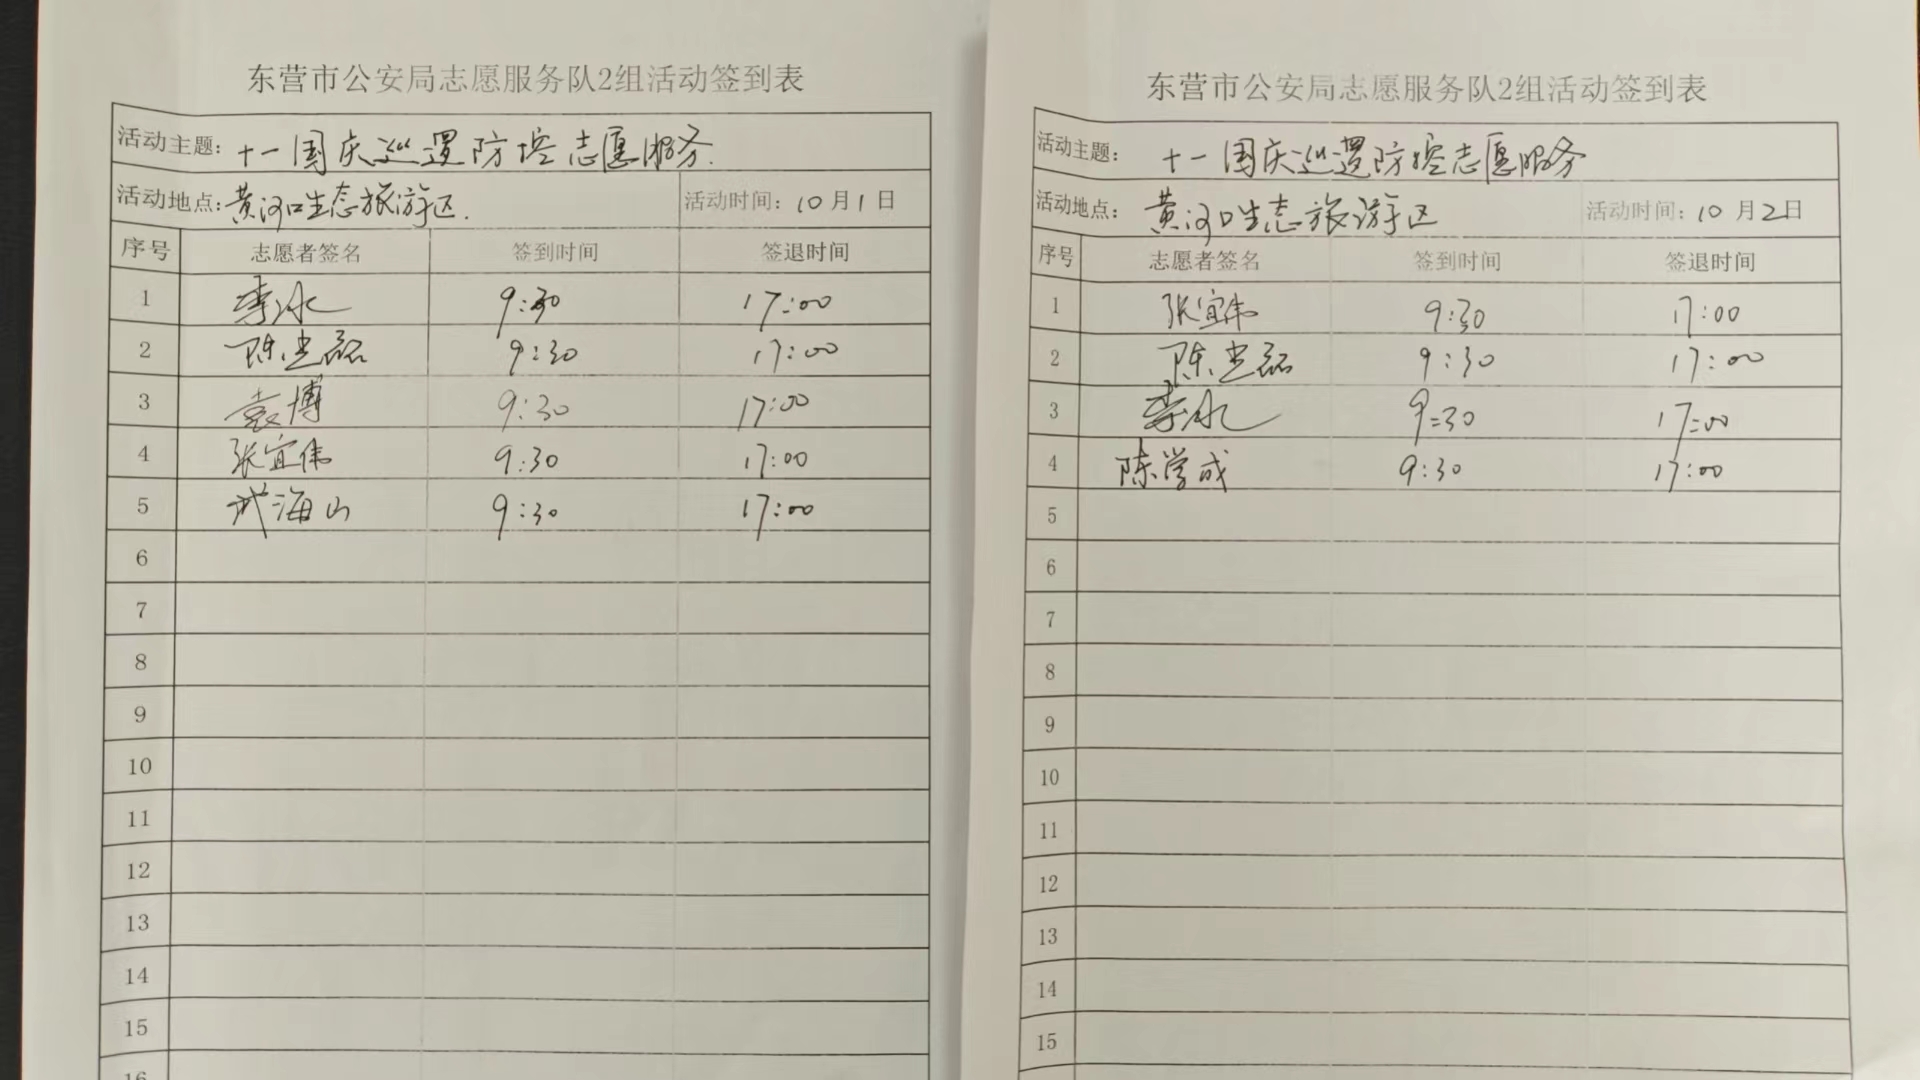 东营市公安局志愿服务队2组活动签到表
活动主题: 十一国庆巡逻防控志愿服务.
活动地点: 黄河口生态旅游区. 活动时间: 10月1日
序号 志愿者签名 签到时间 签退时间
1 李冰 9:30 17:00
2 陈 磊 9:30 17:00
3 袁博 9:30 17:00
4 张宜伟 9:30 17:00
5 武海山 9:30 17:00
6
7
8
9
10
11
12
13
14
15
16
东营市公安局志愿服务队2组活动签到表
活动主题: 十一国庆巡逻防控志愿服务
活动地点: 黄河口生态旅游区 活动时间: 10月2日
序号 志愿者签名 签到时间 签退时间
1 张宜伟 9:30 17:00
2 陈 磊 9:30 17:00
3 李冰 9:30 17:00
4 陈学成 9:30 17:00
5
6
7
8
9
10
11
12
13
14
15